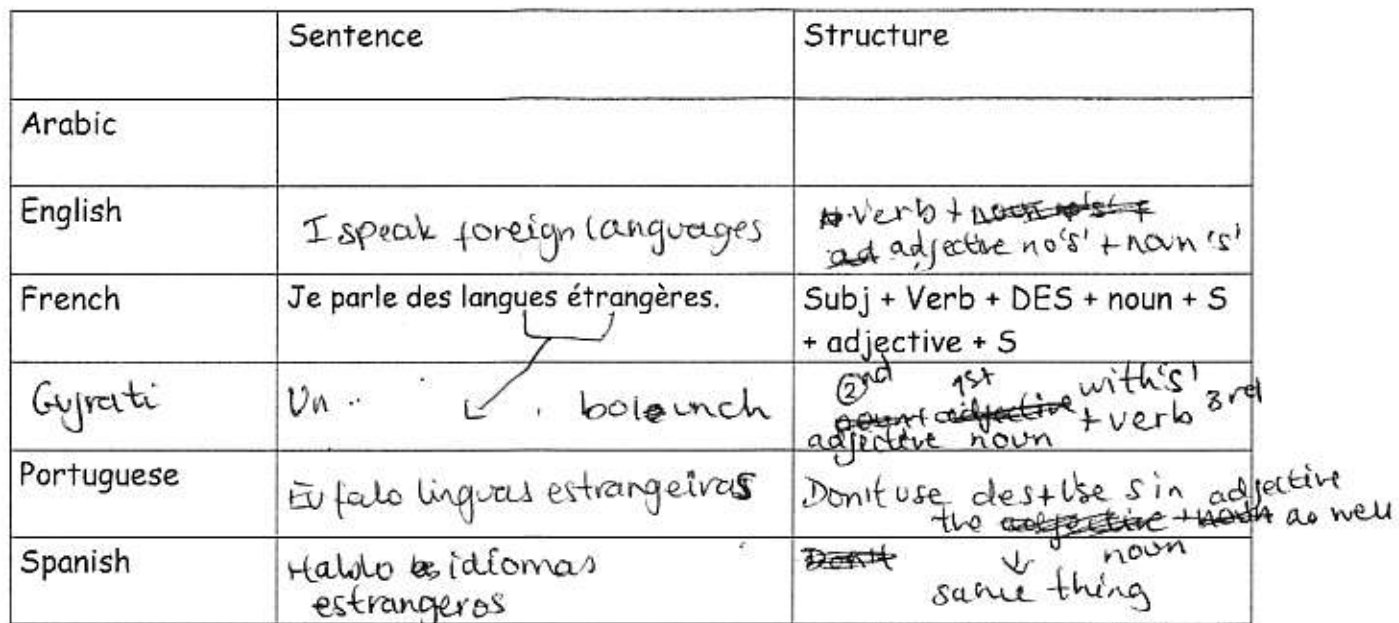 Sentence Structure
Arabic
English I speak foreign languages Verb +
adjective no 's' + noun 's'
French Je parle des langues étrangères. Subj + Verb + DES + noun + S
+ adjective + S
2nd 1st with 's'
Gujrati Un .. boleunch + verb 3rd
adjective noun
Portuguese Eu falo linguas estrangeiras Don't use des + Use s in adjective
the as well
noun
Spanish Hablo idiomas same thing
estrangeros